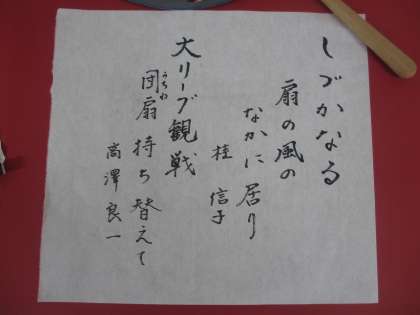 しづかなる
扇の風の
なかに居り
桂 信子
大リーグ観戦
団扇 持ち替えて
うちわ
高澤良一